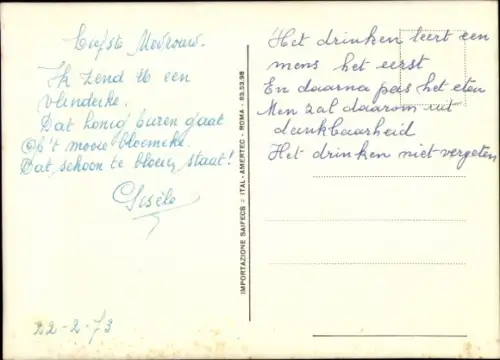 Liefste Mevrouw.
Ik zend U een
vlinderke.
Dat honig puren gaat
Op 't mooie bloemeke.
Dat, schoon te bloeien staat!
Gisèle
22-2-73
IMPORTAZIONE SAIFECS = ITAL-AMERTEC - ROMA - 83.53.98
Het drinken leert een
mens het eerst
En daarna pas het eten
Men zal daarom uit
dankbaarheid
Het drinken niet vergeten